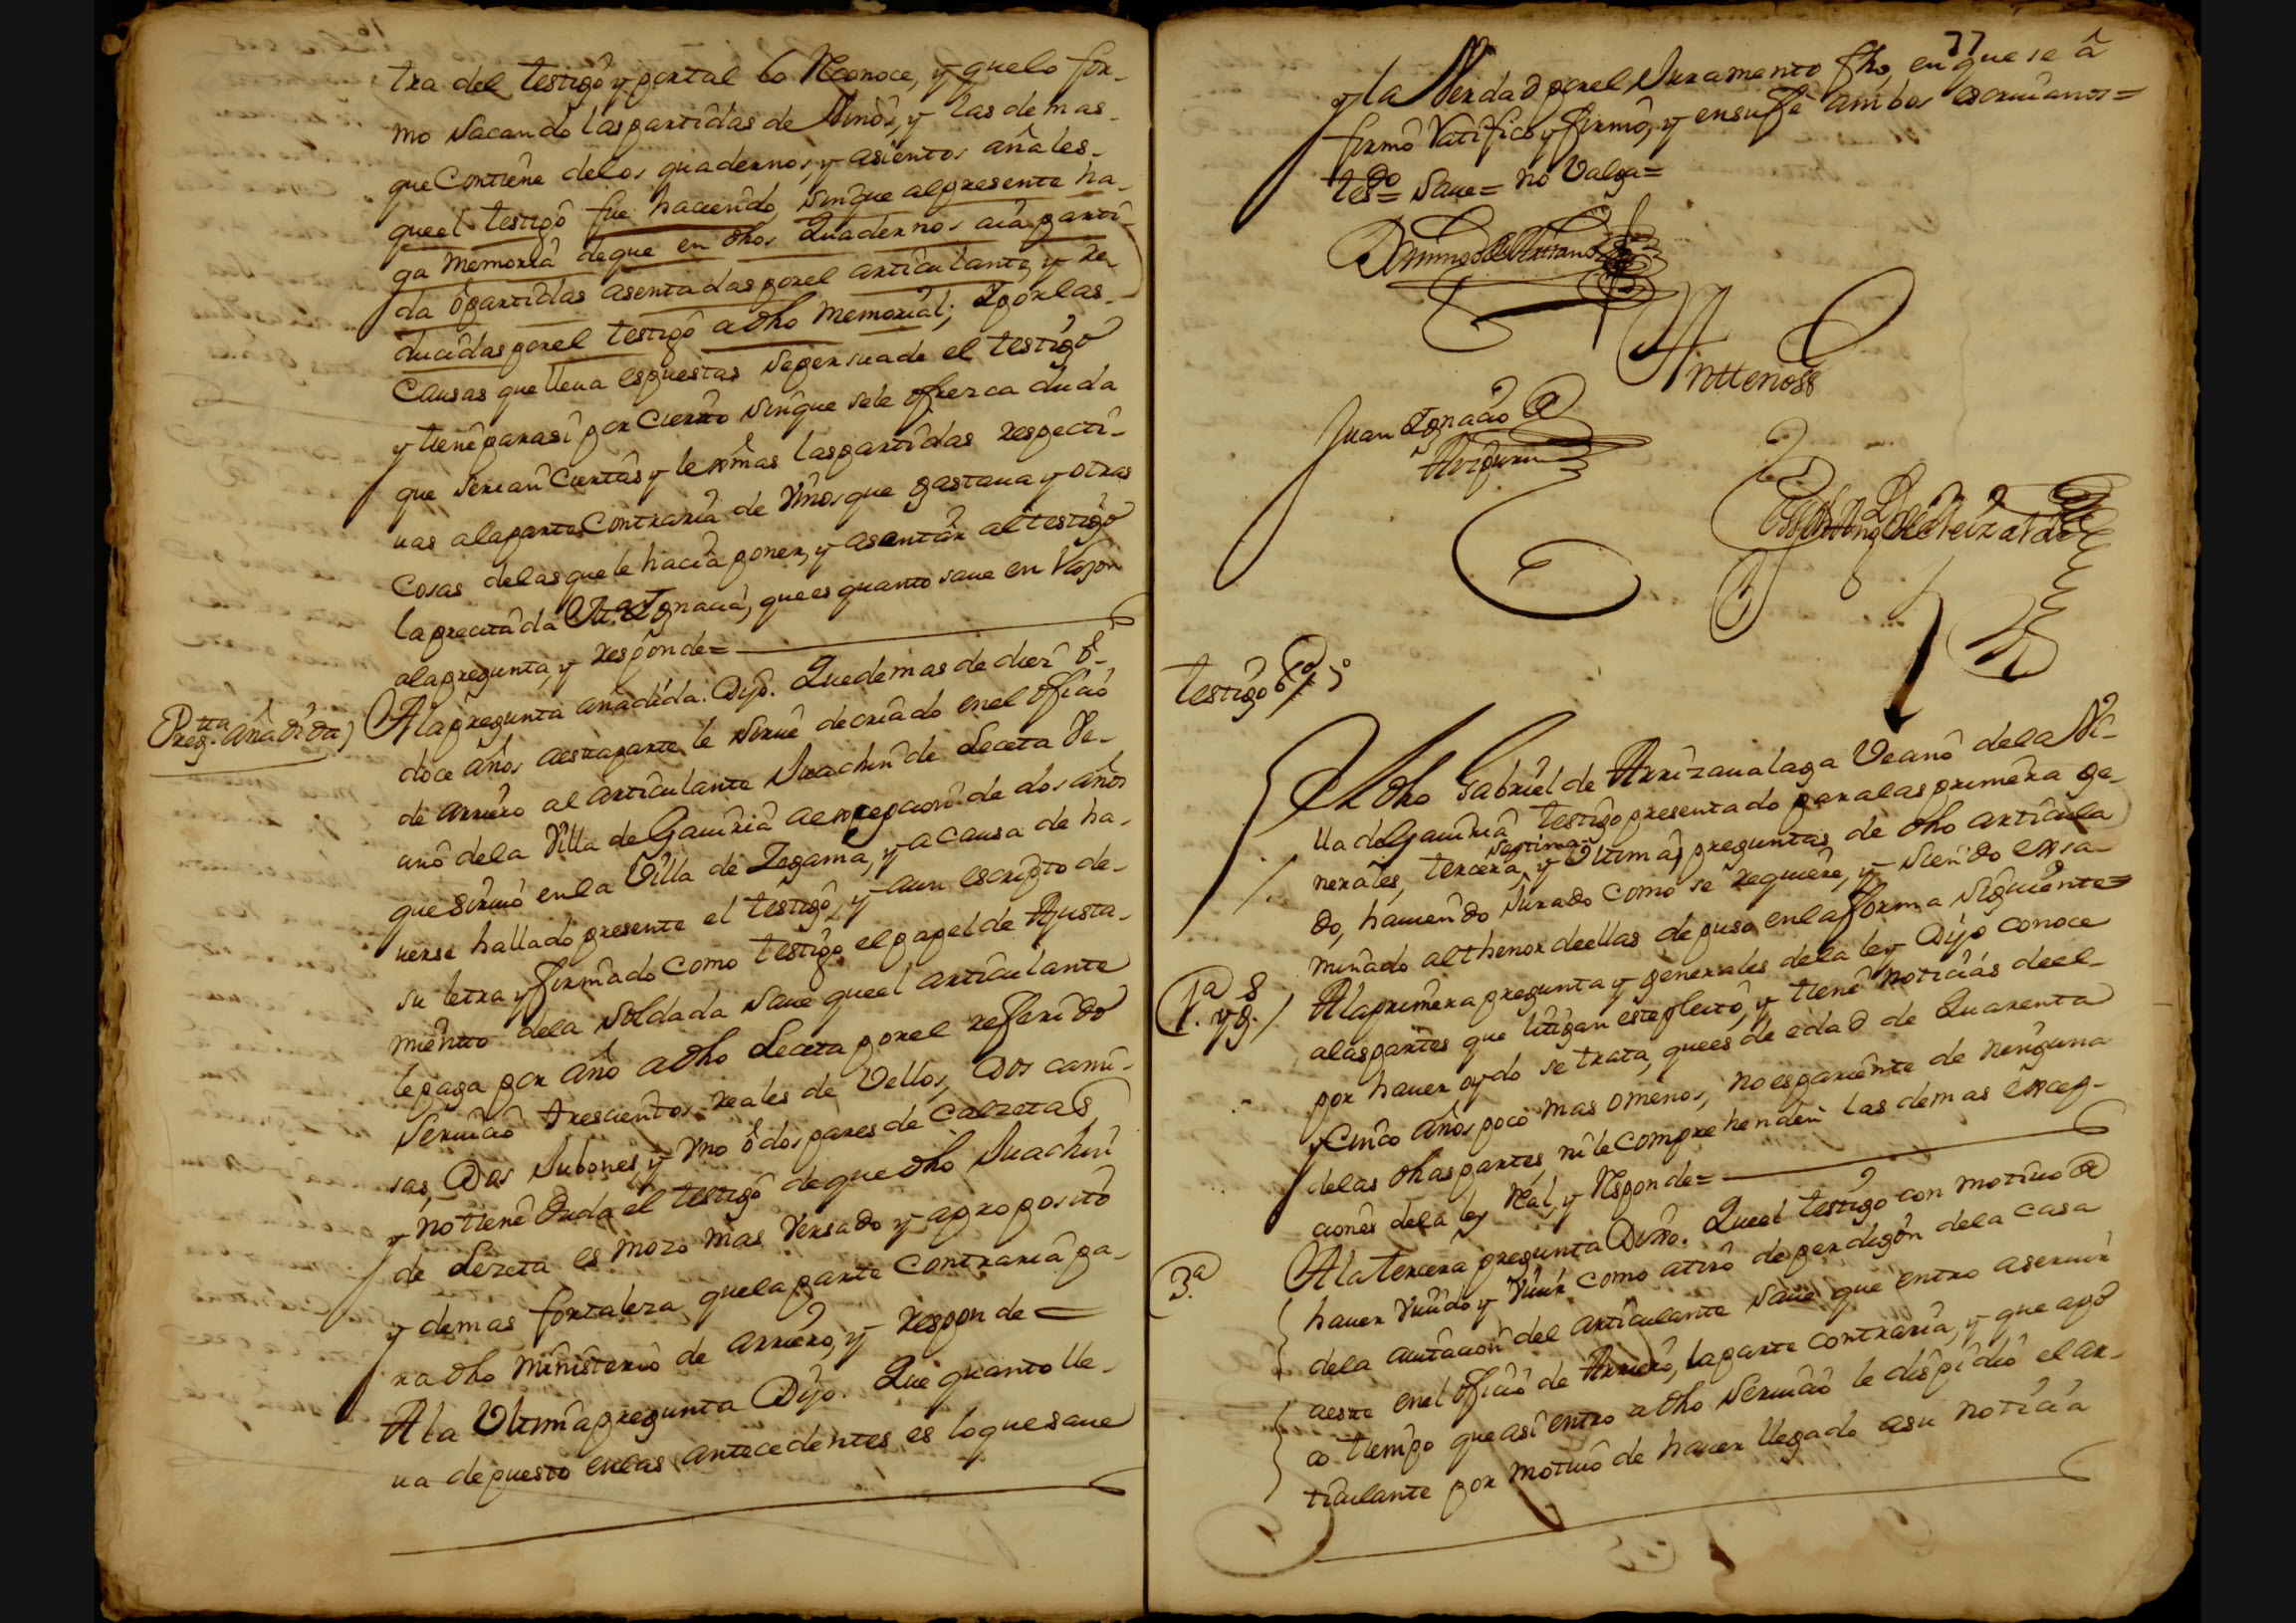 tra del testigo y por tal lo Reconoce, y que lo for-
mo sacando las partidas de Vinos, y las demas
que Contiene de los quadernos, y asientos añales
que el testigo fue haciendo, sin que al presente ha-
ga memoria de que en dhos quadernos aia parti-
da o partidas asentadas por el articulante, y re-
ducidas por el testigo a dho memorial; Y por las
Causas que lleua espuestas se persuade el testigo
y tiene para si por cierto sin que se le ofrezca duda
que serian Ciertas y lexmas las partidas respecti-
uas a la parte Contraria de Vinos que gastaua y otras
Cosas de las que le hacia poner, y asentar al testigo
la precitada Ma. Ygnacia, que es quanto saue en Razon
a la pregunta, y responde=
Pregtta. añadida) A la pregunta añadida. Dijo. Que de mas de diez o
doce años a esta parte le sirue de criado en el oficio
de arriero al articulante Juachin de Leceta Ve-
cino de la Villa de Gauiria a excepcion de dos años
que siruio en la Villa de Zegama, y a causa de ha-
uerse hallado presente el testigo, y aun escripto de
su letra y firmado como testigo el papel de Ajusta-
miento de la soldada saue que el articulante
le paga por año a dho Leceta por el referido
seruicio trescientos reales de Vellon, Dos cami-
sas, Dos Jubones, y Vno o dos pares de calzetas,
y no tiene duda el testigo de que dho Juachin
de Lezeta es mozo mas versado y a proposito
y de mas fortaleza que la parte contraria pa-
ra dho ministerio de arriero, y responde=
A la Vltima pregunta Dijo. Que quanto lle-
ua depuesto en las antecedentes es lo que saue
77
y la Verdad por el Juramento fho, en que se a-
firmo Ratifico y firmo, y en su fe ambos escriuanos=
tesdo= saue= no Valga=
Antte noss
Juan Ygnacio de
testigo 6º
El dho Gabriel de Arrizaualaga Vecino de la Vi-
lla de Gauiria testigo presentado para las primera ge-
septima
nerales, tercera, y Vltimas preguntas de dho articula-
do, hauiendo Jurado como se requiere, y siendo exsa-
minado al thenor de ellas depuso en la forma siguiente=
1.ª y g.s / A la primera pregunta y generales de la ley Dijo conoce
a las partes que litigan este pleito, y tiene noticias de el
por hauer oydo se trata, que es de edad de Quarenta
y cinco años poco mas o menos, no es pariente de ninguna
de las dhas partes, ni le comprehenden las demas excep-
ciones de la ley Real, y Responde=
3.ª A la tercera pregunta Dixo. Que el testigo con motiuo de
hauer Viuido y Viuir como a tiro de perdigon de la casa
de la auitacion del articulante saue que entro a seruir
a este en el oficio de Arriero, la parte contraria, y que a po-
co tiempo que asi entro a dho seruicio le dispidio el ar-
ticulante por motiuo de hauer llegado a su noticia